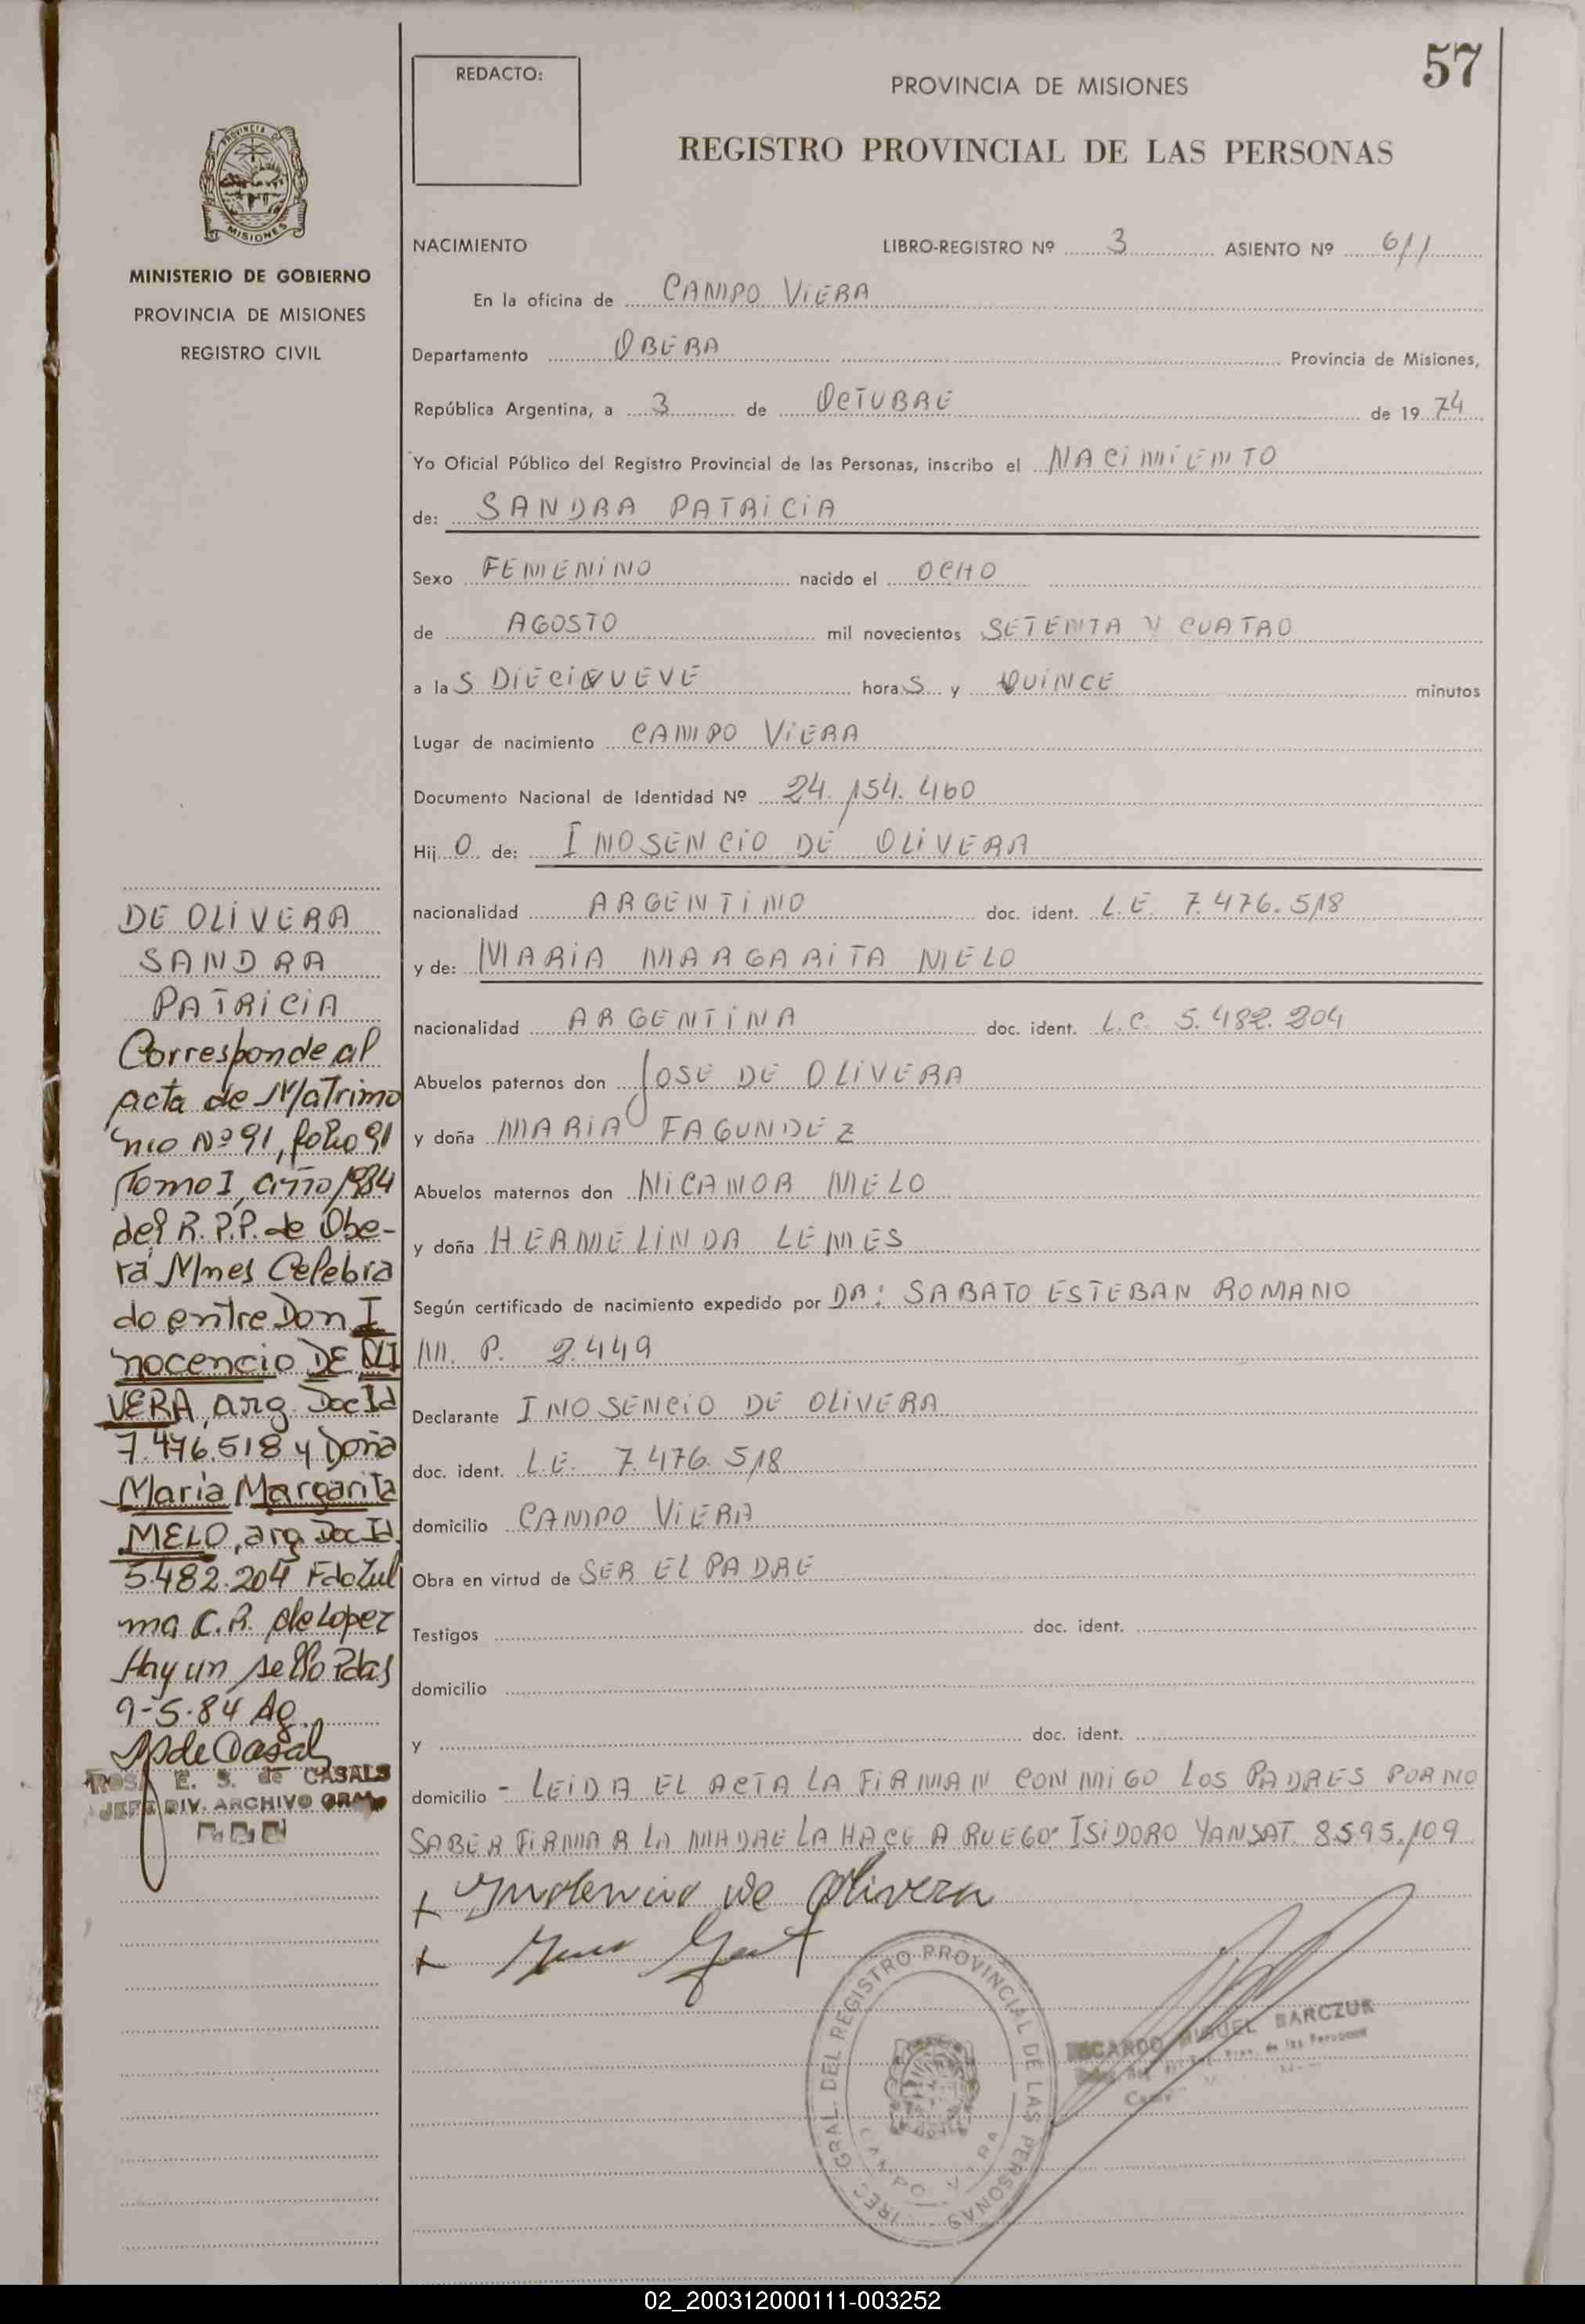 57
REDACTO:
PROVINCIA DE MISIONES
REGISTRO PROVINCIAL DE LAS PERSONAS
PROVINCIA DE
MISIONES
MINISTERIO DE GOBIERNO
PROVINCIA DE MISIONES
REGISTRO CIVIL
NACIMIENTO LIBRO-REGISTRO Nº 3 ASIENTO Nº 611
En la oficina de CAMPO ViERA
Departamento OBERA Provincia de Misiones,
República Argentina, a 3 de OCTUBRE de 19 74
Yo Oficial Público del Registro Provincial de las Personas, inscribo el NACIMIENTO
de: SANDRA PATRICIA
Sexo FEMENINO nacido el OCHO
de AGOSTO mil novecientos SETENTA Y CUATRO
a la S DIECINUEVE hora S y QUINCE minutos
Lugar de nacimiento CAMPO ViERA
Documento Nacional de Identidad Nº 24.154.460
Hij O de: INOSENCIO DE OLIVERA
nacionalidad ARGENTINO doc. ident. L.E. 7.476.518
y de: MARIA MARGARITA MELO
nacionalidad ARGENTINA doc. ident. L.C. 5.482.204
Abuelos paternos don JOSE DE OLIVERA
y doña MARIA FAGUNDEZ
Abuelos maternos don NICANOR MELO
y doña HERMELINDA LEMES
Según certificado de nacimiento expedido por DR: SABATO ESTEBAN ROMANO
M. P. 2.449
Declarante INOSENCIO DE OLIVERA
doc. ident. L.E. 7.476.518
domicilio CAMPO ViERA
Obra en virtud de SER EL PADRE
Testigos doc. ident.
domicilio
y doc. ident.
domicilio - LEIDA EL ACTA LA FIRMAN CONMIGO LOS PADRES POR NO
SABER FIRMAR LA MADRE LA HACE A RUEGO: ISIDORO YANSAT 8.595.109
+ Inosencio de Olivera
+
DE OLIVERA
SANDRA
PATRICIA
Corresponde al
acta de Matrimo
nio Nº 91, folio 91
Tomo I, año 1984
del R.P.P. de Obe-
rá Mnes Celebra
do entre Don I
nocencio DE OLI
VERA, arg. Doc Id
7.476.518 y Doña
María Margarita
MELO, arg Doc Id.
5.482.204 Fdo Zul
ma C.R. de Lopez
Hay un sello Pdas
9-5-84 Ag.
ROSA E. S. de CASALS
JEFE DIV. ARCHIVO GRAL
DIREC GRAL. DEL REGISTRO PROVINCIAL DE LAS PERSONAS
CAMPO VIERA
RICARDO MIGUEL BARCZUK
02_200312000111-003252